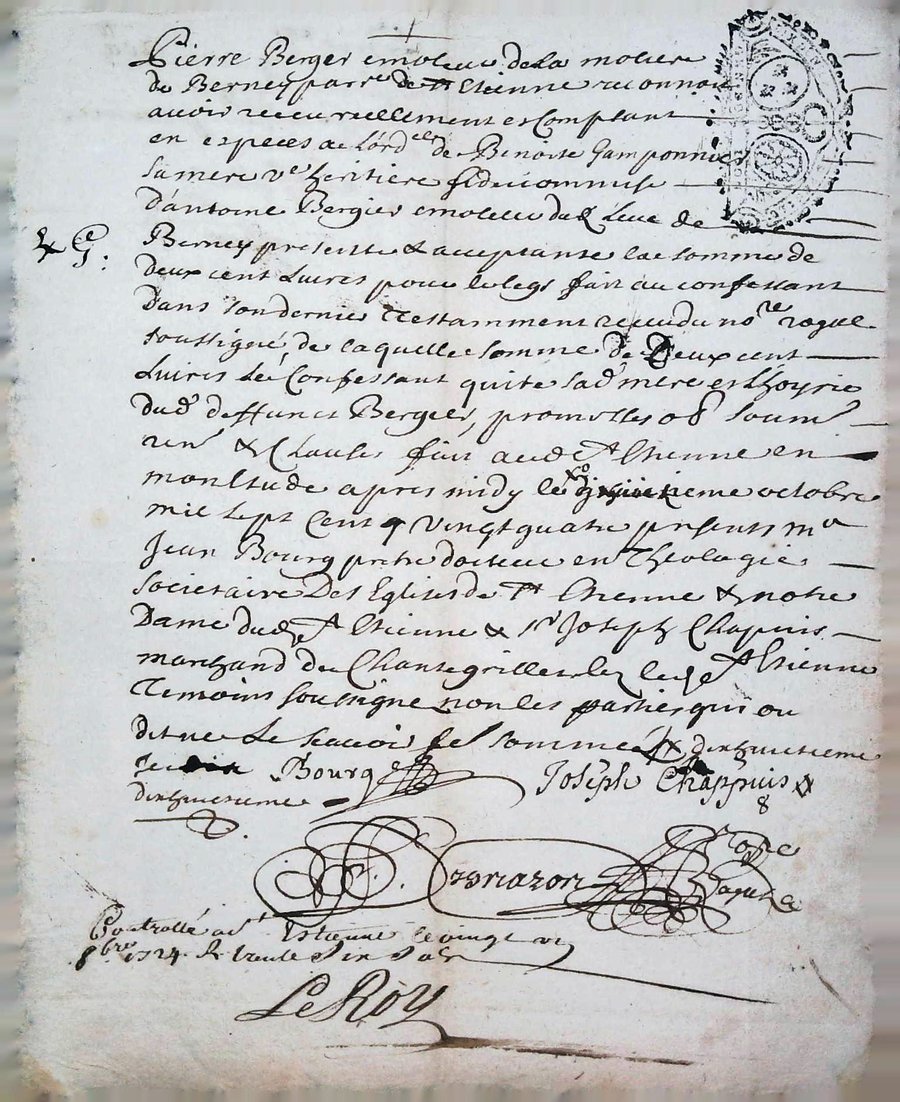 Pierre Berger emoleur de la moliere
de Berney parr^e de S^t Etienne reconnoi
avoir receu reellement et Comptant
en especes de Benoiste Gamponnier
sa mere v^e heritiere fideicommise
D'antoine Bergier emoleur Leue de
Berney presente & acceptante la somme de
deux cent Livres pour le legs fait au confessant
Dans son dernier Testamment receu du no^re royal
soussigné, de laquelle somme de Deux cent
Livres Le Confessant quite sad^e mere et L'hoyrie
dud^t deffunct Bergier, promettes obl soum^n
ren^n & Clause, fait aud S^t Etienne en
mon Etude apres midy le octobre
mil sept Cent vingt quatre presents m^e
Jean Bourg pretre docteur en Theologie
Societaire Des Eglises de S^t Etienne & notre
Dame dud S^t Etienne & s^r Joseph Chapuis
marchand de Chantegrillet lez led S^t Etienne
Temoins soussigne non les parties qui ou
dit ne Le scavoir de ce sommée dixhuictieme
Bourg Joseph Chappuis
dixhuictieme
No^re
Royal
Controllé a S^t Estienne le vingt
8^bre 1724. R trente
LeRoy